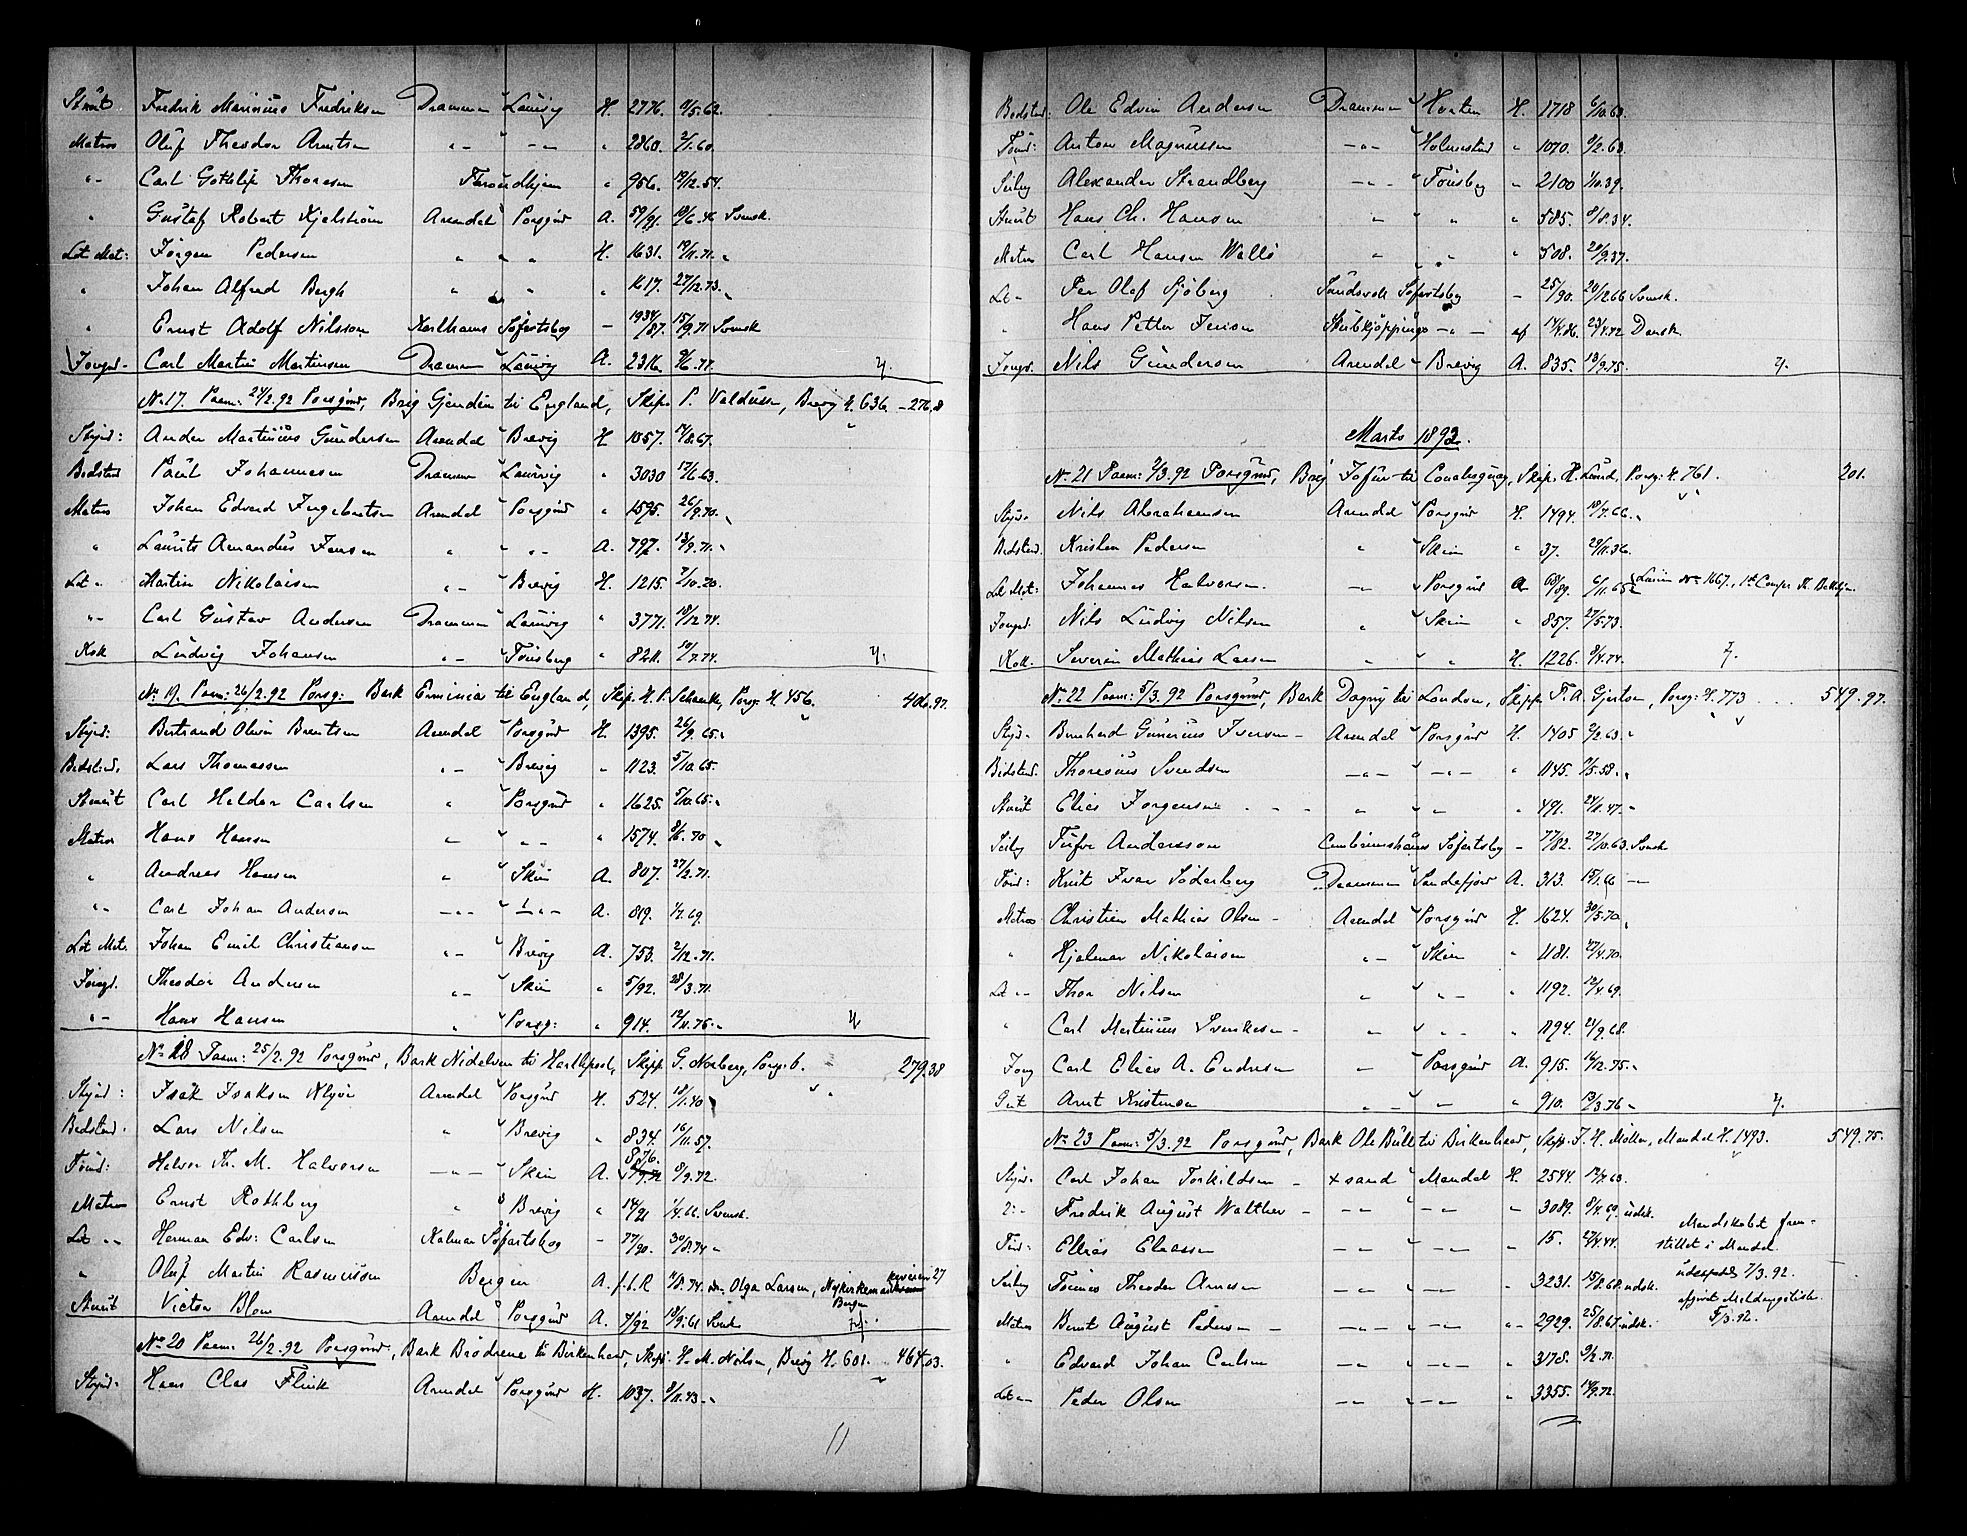 Stuut Fredrik Marinius Fredriksen Drammen Laurvig H. 2776. 9/5.62.
Matros Oluf Theodor Arntsen " - - " - " 2860. 2/1.60.
" - Carl Gothlif Thoresen Throndhjem " 956. 19/12.54.
" Gustaf Robert Kjelstrøm Arendal Porsgrd A. 59/91. 10/6.46 Svensk.
Let Mat: Jørgen Pedersen " " " H. 1631. 19/11.71. "
" Johan Alfred Bergh " " " " 1617. 27/12.73. "
" Ernst Adolf Nilsson Karlhamns Søfartsbog - 1934/87. 15/9.71 Svensk
Jungm - Carl Martin Martinsen Drammen Laurvig A. 2316. 9/6.77.
No 17. Paam: 24/2.92 Porsgrd, Brig Gjendin til England, Skip. P. Valdersen, Brevig H. 636. - 276.8
Styrm: Ander Martinius Gundersen Arendal Brevig H 1057. 14/8.67.
Bedstmd Paul Johannesen Drammen Laurvig " 3030 17/6.63.
Matros Johan Edvard Ingebretsen Arendal Porsgrd " 1595. 26/9.70. "
" Laurits Amandus Jensen " " " - A. 797. 13/9.71. "
Let " Martin Nikolaisen " - Brevig H. 1215. 7/10.70.
" - Carl Gustav Andersen Drammen Laurvig " 3771. 18/12.74.
Kok Ludvig Johansen " - Tønsberg " 8211. 10/7.74.
No 19. Paam: 26/2.92 Porsg: Bark Erminia til England, Skip. H. P. Schanche, Porsg H. 456. 406.97.
Styrm: Bertrand Olvin Berntsen Arendal Porsgrd H. 1395. 26/9.65. "
Bedstmd. Lars Thomassen " - Brevig " 1123. 5/10.65.
Stuut Carl Haldor Carlsen " Porsgrd " 1625. 5/10.65. "
Matros Hans Hansen " " - " 1574. 8/6.70 "
" Andreas Hansen " Skien A. 807. 27/2.71.
" - Carl Johan Andersen - " - - " - A. 819. 1/7.69.
Let Mat. Johan Emil Christiansen " - Brevig A. 753. 2/12.71.
Jungm. Theodor Andersen " - Skien " 5/92. 28/3.71.
" - Hans Hansen " Porsg: " 914. 12/11.75. "
No 18 Paam: 25/2.92 Porsgrd, Bark Nidelven til Hartlepool, Skipp. G. Norberg, Porsg. 6. 279.38
Styrm: Isak Isaksen Klyve Arendal Porsgrd H. 524. 18/1.40 "
Bedstmd. Lars Nilsen " Brevig " 834. 16/11.57.
Tømd: Halvor Th. M. Halvorsen - " - Skien A. 876. 8/9.72.
Matros Ernst Rothberg " Brevig " 14/91 1/4.66. Svensk.
Let " - Herman Edv: Carlsen Kalmar Søfartsbog - 77/90. 30/8.74 "
" Oluf Martin Rasmussen Bergen A. f.l.R 11/8.74. Olga Larsen, Nykirkeman 27
Bergen
Stuut Victor Blom Arendal Porsgrd A. 7/92 18/9.61 Svensk
No 20 Paam: 26/2.92 Porsgrd, Bark Brødrene til Birkenhead, Skip. H. M. Nilsen, Brevig H. 601. - 464.03.
Styrm - Hans Clas Flink Arendal Porsgrd H. 1037. 8/11.43. "
11
Bedstmd: Ole Edvin Andersen Drammen Horten H. 1718 6/10.63.
Tømd: Anton Magnussen - " - Holmestrd " 1070. 8/2.60.
Seilmg Alexander Strandberg - " - Tønsbg " 2100 1/10.39.
Stuut Hans Ch. Hansen " " " 585. 8/8.34.
Matros Carl Hansen Wallø " " " 508. 20/9.37.
Let - Per Olof Sjøberg Sundsvall Søfartsbg - 25/90. 20/12.66 Svensk.
" Hans Petter Jenson Stubkjøppings - " - af 14/4.86. 23/4.42 Dansk
Jungm. Nils Gundersen Arendal Brevig A. 835. 13/9.75.
Marts 1892.
No 21 Paam: 2/3.92 Porsgrd, Brig Jofur til Conalisquay, Skip. H. Lund, Porsg: H. 761. 201.
Styrm - Nils Abrahamsen Arendal Porsgrd H. 1494. 18/7.66. "
Bedstmd. Kristen Pedersen " Skien " 37. 29/11.36.
Let Mat: Johannes Halvorsen - " Porsgrd A 68/89. 6/11.65 Larm No 1667, 1st Comp.
Jungm. Nils Ludvig Nilsen " Skien " 857. 27/5.73.
Kok. Severin Mathias Larsen " " H. 1226. 9/4.74.
No 22 Paam: 5/3.92 Porsgrund, Bark Dagny til London, Skipp T. A. Gjertsen, Porsg: H. 773 . . . . 549.97.
Styrm - Bernhard Gunerius Iversen - Arendal Porsgrd H. 1405 9/2.63. "
Bedstmd. Thoresius Svendsen - " - - " - " 1145. 7/5.58. "
Stuut Elias Jorgensen - - - " " - " 491. 24/11.47. "
Seilmg Ture Andersson Cimbrinshamns Søfartsbg - 77/82. 27/10.63. Svensk
Tømd: Knut Ivar Søderberg Drammen Sandefjord A. 313. 15/1.66 - " -
Matros Christian Mathias Olsen - Arendal Porsgrd H. 1624. 30/5.70. "
" Hjalmar Nikolaisen " - Skien " 1181. 27/4.70.
Let " - Thor Nilsen " " - " 1192. 12/4.69.
" Carl Martinius Svenkesen - " " - " 1194. 21/9.68.
Jung Carl Elias A. Endresen - Porsgrd A. 915. 14/12.75. "
Gut Arnt Kristensen " - " - " 910. 13/3.76 "
No 23 Paam: 5/3.92 Porsgrund, Bark Ole Bull til Birkenhead, Skipp. J. H. Møller, Mandal H. 1493. 549.75.
Styrm - Carl Johan Torkildsen - Xsand Mandal H. 2544. 12/7.63.
2: - Fredrik August Walther - - " - - " - " 3089. 8/4.69. udsk.
Tømd: Ellias Eliassen - " - - " - " 15. 27/4.44.
Seilmg Tønnes Theodor Arnesen - " - - " - " 3231. 15/8.68 udsk.
Matros Bernt August Pedersen - - " - - " - " 2929. 25/8.67. udsk.
" Edvard Johan Carlsen - " - - " - " 3178. 9/2.71.
Let " - Peder Olsen - " - - " - " 3355. 14/9.72.
Mandskabet frem-
stillet i Mandal.
udexped 7/3.92.
afgivet Meldingsliste
5/3.92.